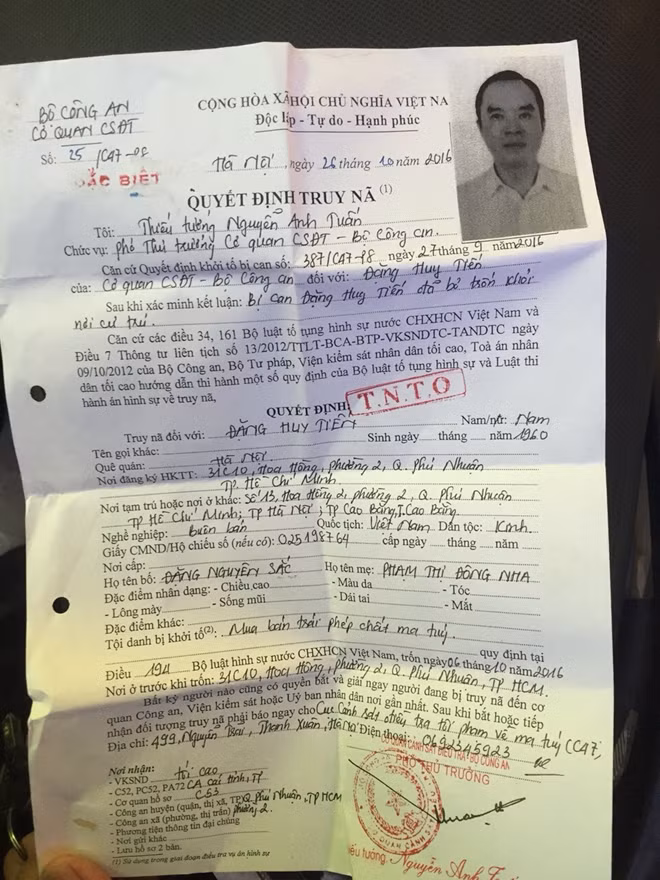 BỘ CÔNG AN
CƠ QUAN CSĐT
Số: 25 /C47-P8
ĐẶC BIỆT
CỘNG HÒA XÃ HỘI CHỦ NGHĨA VIỆT NA
Độc lập - Tự do - Hạnh phúc
Hà Nội, ngày 26 tháng 10 năm 2016
QUYẾT ĐỊNH TRUY NÃ (1)
Tôi: Thiếu tướng Nguyễn Anh Tuấn
Chức vụ: phó Thủ trưởng Cơ quan CSĐT - Bộ Công an.
Căn cứ Quyết định khởi tố bị can số: 387/C47-P8 ngày 27 tháng 9 năm 2016
của: Cơ quan CSĐT - Bộ Công an đối với: Đặng Huy Tiến
Sau khi xác minh kết luận: Bị can Đặng Huy Tiến đã bỏ trốn khỏi
nơi cư trú.
Căn cứ các điều 34, 161 Bộ luật tố tụng hình sự nước CHXHCN Việt Nam và
Điều 7 Thông tư liên tịch số 13/2012/TTLT-BCA-BTP-VKSNDTC-TANDTC ngày
09/10/2012 của Bộ Công an, Bộ Tư pháp, Viện kiểm sát nhân dân tối cao, Toà án nhân
dân tối cao hướng dẫn thi hành một số quy định của Bộ luật tố tụng hình sự và Luật thi
hành án hình sự về truy nã,
QUYẾT ĐỊNH
T.N.T.O
Truy nã đối với: ĐẶNG HUY TIẾN Nam/nữ: Nam
Tên gọi khác: Sinh ngày tháng năm 1960
Quê quán: Hà Nội.
Nơi đăng ký HKTT: 31C10, Hoa Hồng, phường 2, Q. Phú Nhuận
TP. Hồ Chí Minh.
Nơi tạm trú hoặc nơi ở khác: Số 13, Hoa Hồng 2, phường 2, Q. Phú Nhuận
TP Hồ Chí Minh; TP Hà Nội; TP Cao Bằng, T. Cao Bằng.
Nghề nghiệp: buôn bán Quốc tịch: Việt Nam Dân tộc: Kinh.
Giấy CMND/Hộ chiếu số (nếu có): 025198764 cấp ngày tháng năm
Nơi cấp:
Họ tên bố: ĐẶNG NGUYÊN SẮC Họ tên mẹ: PHẠM THỊ ĐÔNG NHA
Đặc điểm nhân dạng: - Chiều cao - Màu da - Tóc
- Lông mày - Sống mũi - Dái tai - Mắt
Đặc điểm khác:
Tội danh bị khởi tố(2). Mua bán trái phép chất ma túy. quy định tại
Điều 194 Bộ luật hình sự nước CHXHCN Việt Nam, trốn ngày 06 tháng 10 năm 2016
Nơi ở trước khi trốn: 31C10, Hoa Hồng, phường 2, Q. Phú Nhuận, TP HCM.
Bất kỳ người nào cũng có quyền bắt và giải ngay người đang bị truy nã đến cơ
quan Công an, Viện kiểm sát hoặc Uỷ ban nhân dân nơi gần nhất. Sau khi bắt hoặc tiếp
nhận đối tượng truy nã phải báo ngay cho Cục Cảnh sát điều tra tội phạm về ma túy (C47,
Địa chỉ: 499, Nguyễn Trãi, Thanh Xuân, Hà Nội Điện thoại: 0692345923
CƠ QUAN CẢNH SÁT ĐIỀU TRA - BỘ CÔNG AN
PHÓ THỦ TRƯỞNG
Nơi nhận:
- VKSND tối cao
- C52, PC52, PA72 CA các tỉnh, TP
- Cơ quan hồ sơ C53
- Công an huyện (quận, thị xã, TP) Q. Phú Nhuận, TP HCM
- Công an xã (phường, thị trấn) phường 2.
- Phương tiện thông tin đại chúng
- Nơi gửi khác
- Lưu hồ sơ 2 bản.
(1) Sử dụng trong giai đoạn điều tra vụ án hình sự
Thiếu tướng Nguyễn Anh